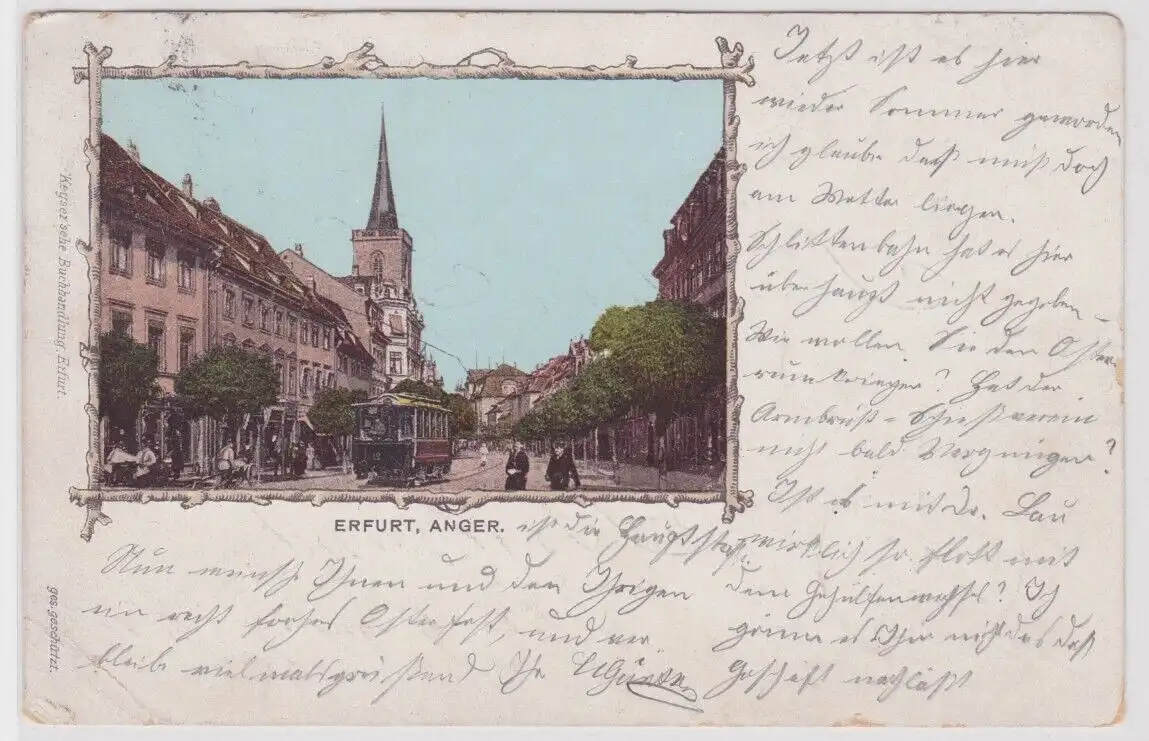 Jetzt ist es hier
wieder Sommer geworden
ich glaube daß muß doch
am Wetter liegen.
Schlittenbahn hat es hier
überhaupt nicht gegeben –
Wie wollen Sie den Oster
kriegen? Hat der
Armbrust-Schießverein
nicht bald Vergnügen?
Ist es mit Dr. Lau
wirklich so flott mit
dem Gehülfenwechsel? Ich
gönne es Ihm nicht das daß
Geschäft nachläßt
ERFURT, ANGER. ist die
Nun wünsche Ihnen und den Ihrigen
ein recht frohes Osterfest, und ver
bleibe vielmalsgrüßend Ihr
Keyser'sche Buchhandlung, Erfurt.
ges. geschützt.